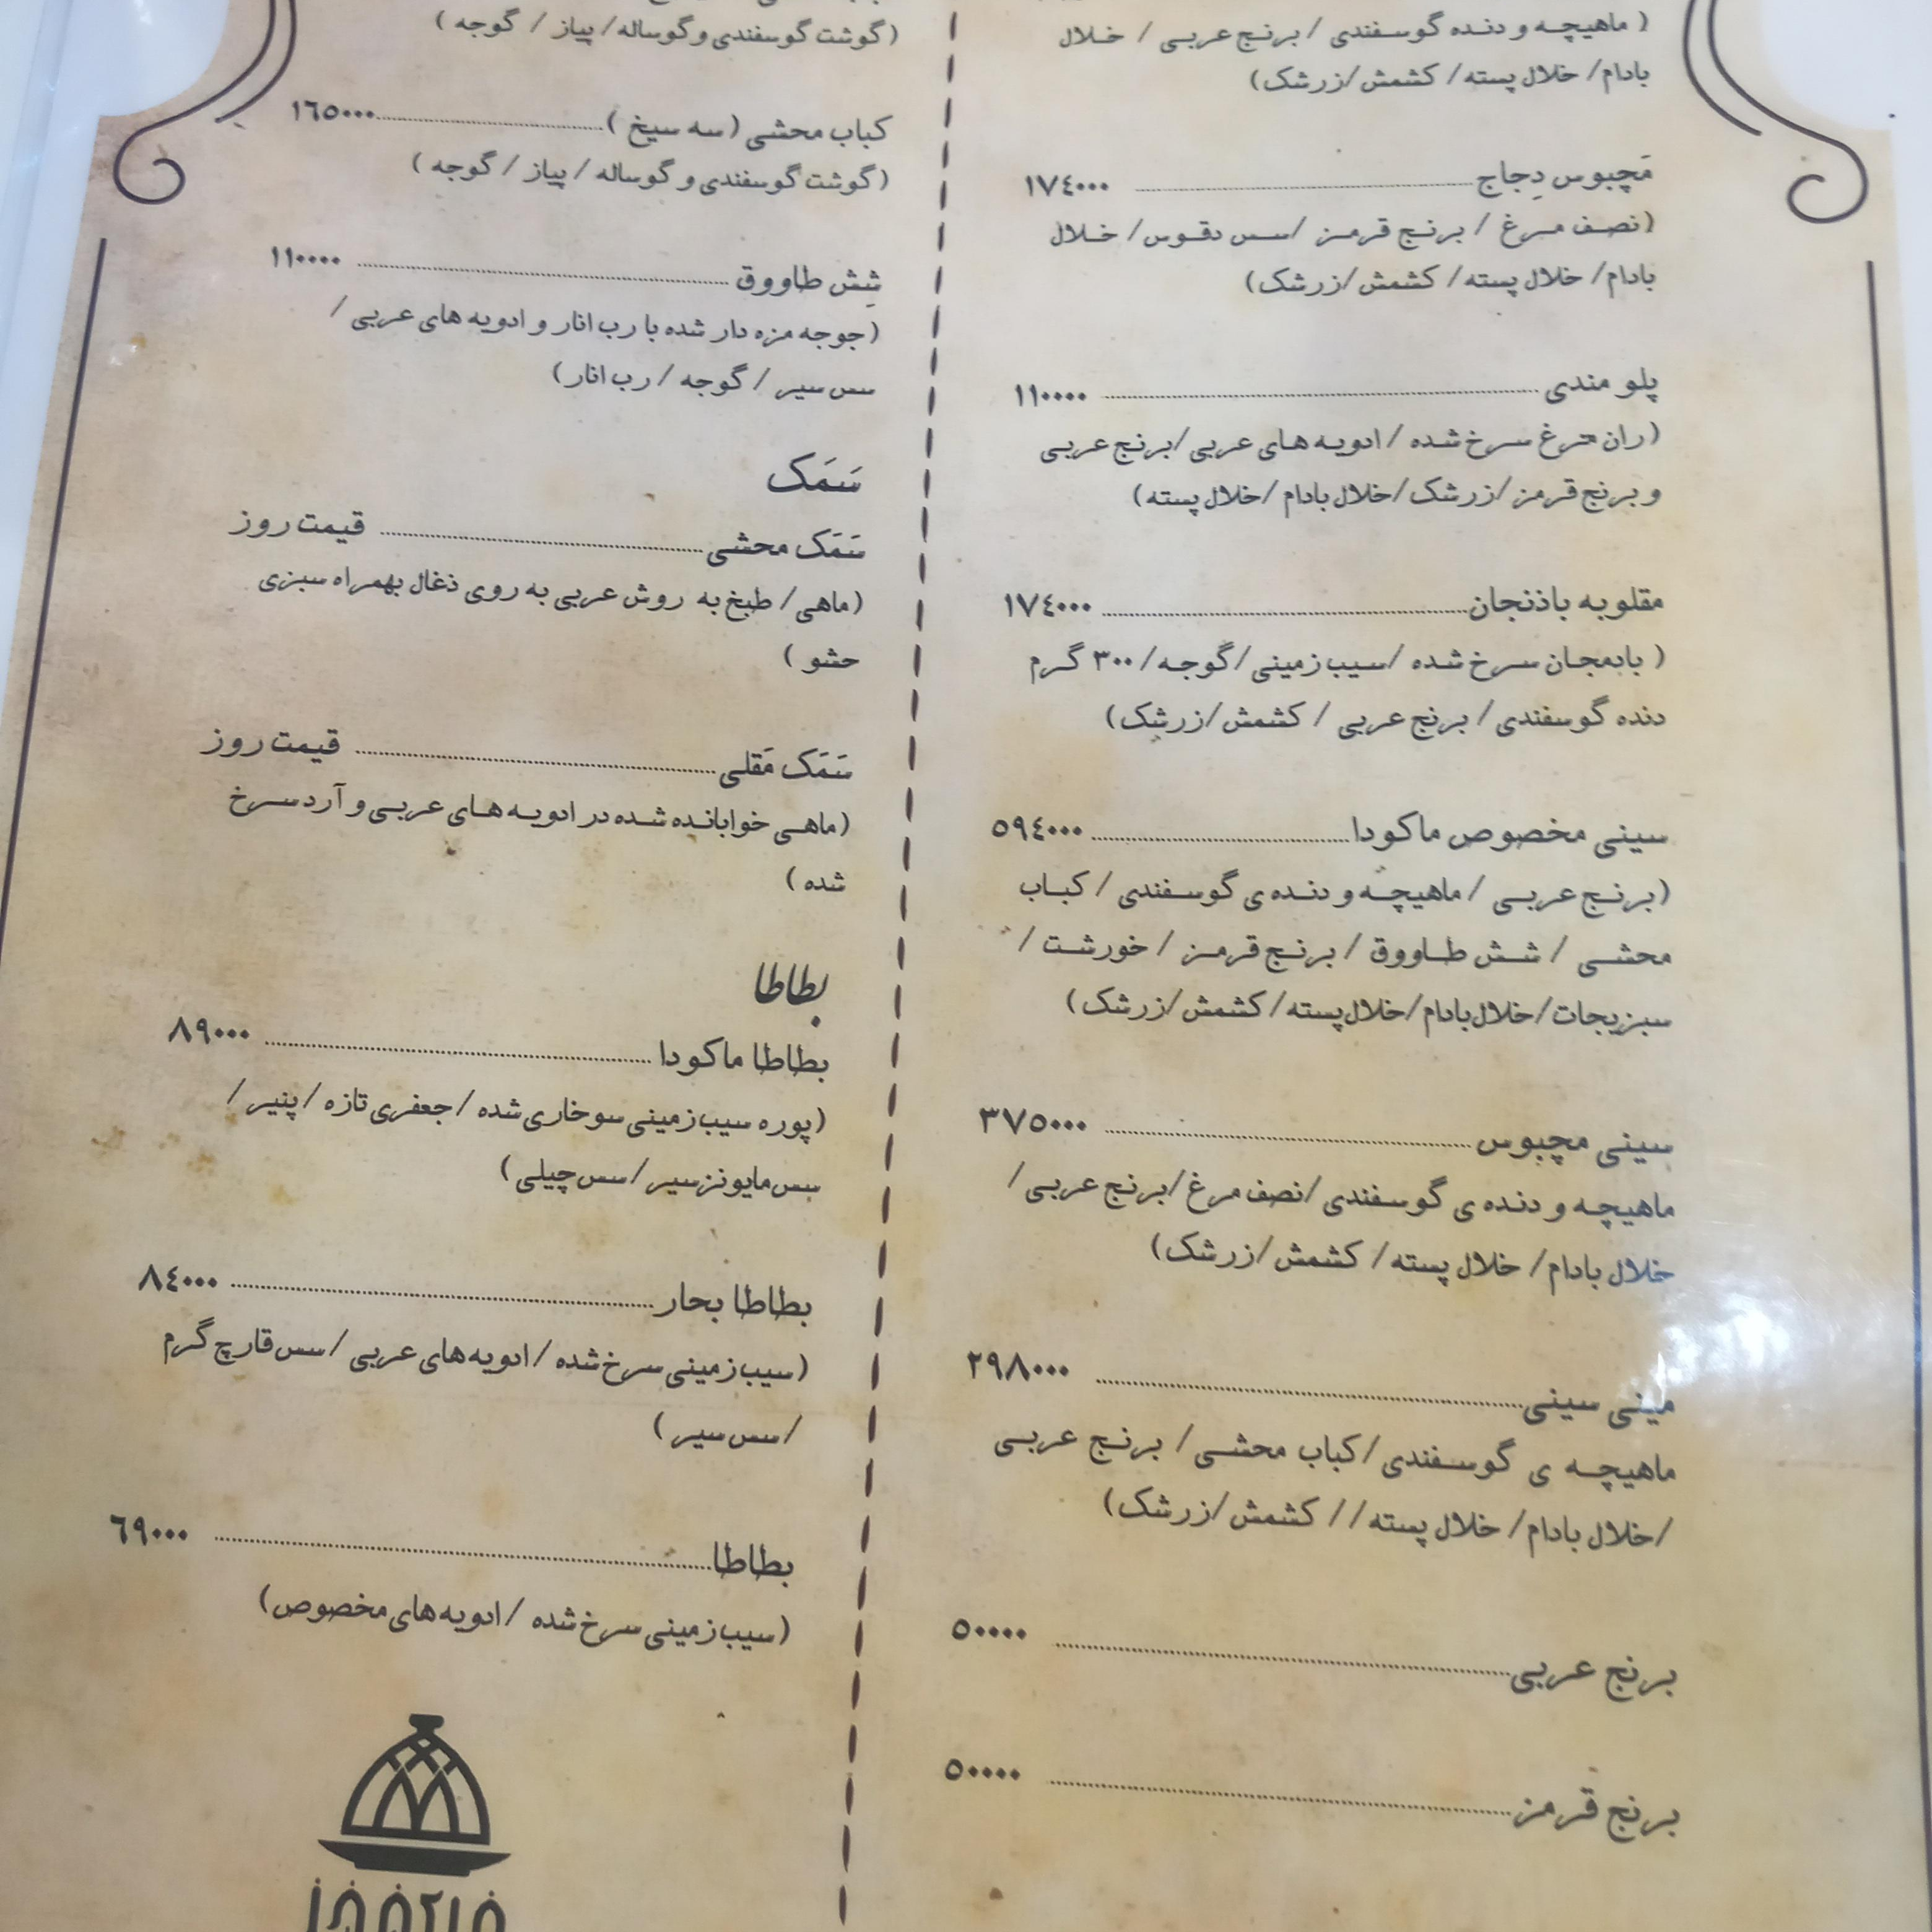 ( ماهیچه و دنده گوسفندی / برنج عربی / خلال
بادام/ خلال پسته/ کشمش/زرشک)
مَچبوس دِجاج .......... ١٧٤٠٠٠
(نصف مرغ / برنج قرمز /سس دقوس/ خلال
بادام/ خلال پسته/ کشمش/زرشک)
پلو مندی .......... ١١٠٠٠٠
(ران مرغ سرخ شده /ادویه های عربی /برنج عربی
و برنج قرمز /زرشک/خلال بادام /خلال پسته)
مقلوبه باذنجان .......... ١٧٤٠٠٠
( بادمجان سرخ شده /سیب زمینی/گوجه/ ٣٠٠ گرم
دنده گوسفندی/ برنج عربی / کشمش/زرشک)
سینی مخصوص ماکودا .......... ٥٩٤٠٠٠
(برنج عربی / ماهیچه و دنده ی گوسفندی / کباب
محشی / شش طاووق / برنج قرمز / خورشت /
سبزیجات/خلال بادام/خلال پسته/ کشمش/زرشک)
سینی مچبوس .......... ٣٧٥٠٠٠
ماهیچه و دنده ی گوسفندی /نصف مرغ/برنج عربی/
خلال بادام/ خلال پسته/ کشمش/زرشک)
مینی سینی .......... ٢٩٨٠٠٠
ماهیچه ی گوسفندی/کباب محشی/ برنج عربی
/خلال بادام/ خلال پسته// کشمش/زرشک)
برنج عربی .......... ٥٠٠٠٠
برنج قرمز .......... ٥٠٠٠٠
(گوشت گوسفندی وگوساله/ پیاز / گوجه )
کباب محشی (سه سیخ ) .......... ١٦٥٠٠٠
(گوشت گوسفندی و گوساله / پیاز / گوجه )
شِش طاووق .......... ١١٠٠٠٠
(جوجه مزه دار شده با رب انار و ادویه های عربی /
سس سیر / گوجه / رب انار)
سَمَک
سَمَک محشی .......... قیمت روز
(ماهی/ طبخ به روش عربی به روی ذغال بهمراه سبزی
حشو )
سَمَک مَقلی .......... قیمت روز
(ماهی خوابانده شده در ادویه های عربی و آرد سرخ
شده )
بطاطا
بطاطا ماکودا .......... ٨٩٠٠٠
(پوره سیب زمینی سوخاری شده /جعفری تازه /پنیر /
سس مایونز سیر /سس چیلی)
بطاطا بحار .......... ٨٤٠٠٠
(سیب زمینی سرخ شده /ادویه های عربی /سس قارچ گرم
/سس سیر )
بطاطا .......... ٦٩٠٠٠
(سیب زمینی سرخ شده /ادویه های مخصوص)